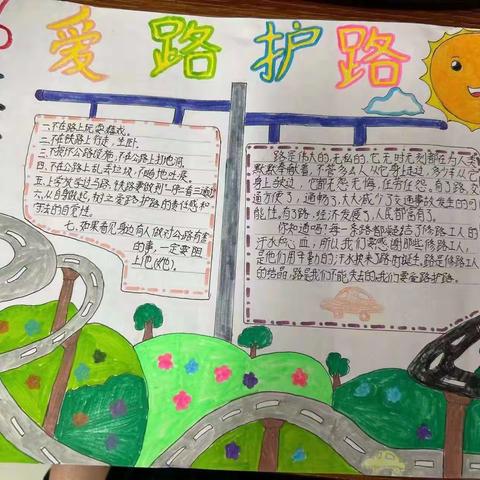 爱路护路
一、不在路上玩耍嬉戏。
二、不在铁路上行走、坐卧。
三、不损坏公路设施,不在公路上打地洞。
四、不在公路上乱丢垃圾,不随地吐痰。
五、上学放学过马路、铁路要做到一停二看三通过
六、从自身做起,树立爱路护路的责任感和
守法的自觉性。
七、如果看见身边有人做对公路有害
的事,一定要阻
止他(她)。
路是伟大的,无私的,它无时无刻都在为人类
默默奉献着,不管多少人从它身上走过,多少车从它
身上驶过,它都无怨无悔,任劳任怨。有了路,交
通方便了,通畅了,大大减少了交通事故发生的可
能性。有了路,经济发展了,人民都富有了。
你知道吗?每一条路都凝结了修路工人的
汗水与心血,所以我们要感谢那些修路工人
是他们用辛勤的汗水换来了路的诞生。路是修路工人
的结晶,路是我们不能失去的,我们要爱路护路。